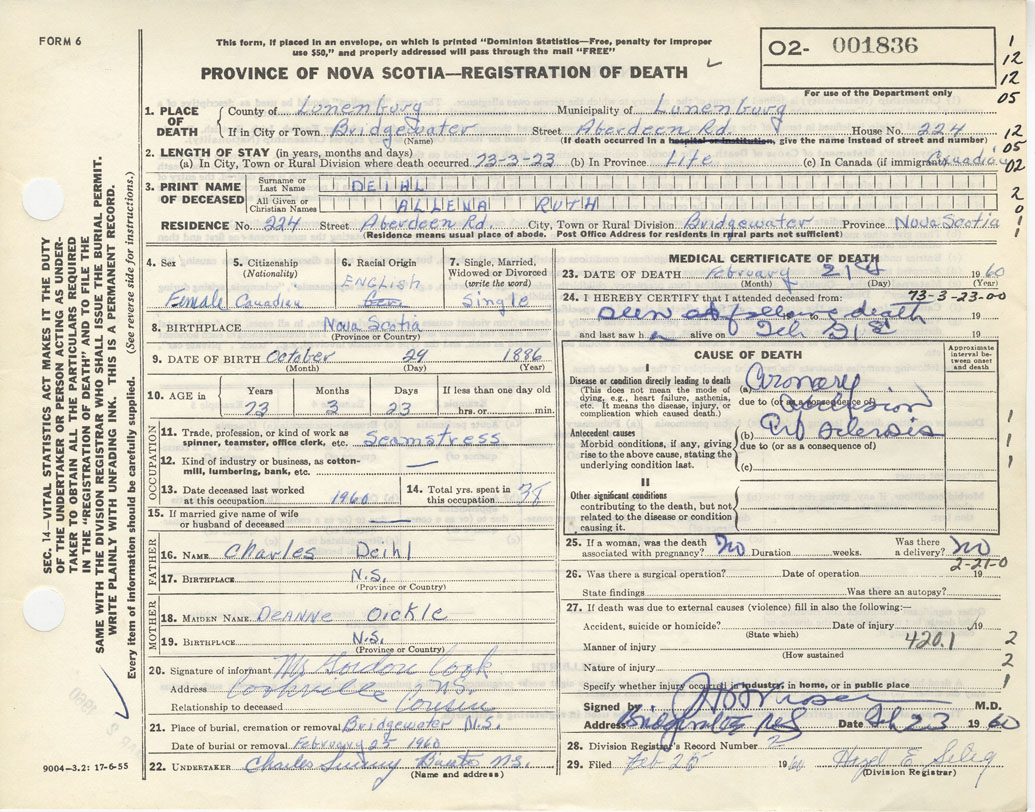 FORM 6
This form, if placed in an envelope, on which is printed "Dominion Statistics—Free, penalty for improper
use $50," and properly addressed will pass through the mail "FREE"
PROVINCE OF NOVA SCOTIA—REGISTRATION OF DEATH
02- 001836
For use of the Department only
1
12
12
05
12
05
02
2
0
1
1. PLACE OF DEATH County of Lunenburg Municipality of Lunenburg
If in City or Town Bridgewater Street Aberdeen Rd. House No. 224
(Name) (If death occurred in a hospital or institution, give the name instead of street and number)
2. LENGTH OF STAY (in years, months and days)
(a) In City, Town or Rural Division where death occurred 73-3-23 (b) In Province Life (c) In Canada (if immigrant) Canadian
3. PRINT NAME OF DECEASED Surname or Last Name DEIHL
All Given or Christian Names ALLENA RUTH
RESIDENCE No. 224 Street Aberdeen Rd. City, Town or Rural Division Bridgewater Province Nova Scotia
(Residence means usual place of abode. Post Office Address for residents in rural parts not sufficient)
4. Sex Female
5. Citizenship (Nationality) Canadian
6. Racial Origin ENGLISH
7. Single, Married, Widowed or Divorced (write the word) Single
8. BIRTHPLACE Nova Scotia
(Province or Country)
9. DATE OF BIRTH October 29 1886
(Month) (Day) (Year)
10. AGE in Years Months Days If less than one day old
73 3 23 hrs. or min.
OCCUPATION
11. Trade, profession, or kind of work as spinner, teamster, office clerk, etc. Seamstress
12. Kind of industry or business, as cotton-mill, lumbering, bank, etc. —
13. Date deceased last worked at this occupation 1960
14. Total yrs. spent in this occupation 38
15. If married give name of wife or husband of deceased —
FATHER
16. NAME Charles Deihl
17. BIRTHPLACE N.S.
(Province or Country)
MOTHER
18. MAIDEN NAME DEANNE OICKLE
19. BIRTHPLACE N.S.
(Province or Country)
20. Signature of informant Mrs Gordon Cook
Address Cookville N.S.
Relationship to deceased Cousin
21. Place of burial, cremation or removal Bridgewater N.S.
Date of burial or removal February 25 1960
22. UNDERTAKER Charles N.S.
(Name and address)
MEDICAL CERTIFICATE OF DEATH
23. DATE OF DEATH February 21st 1960
(Month) (Day) (Year)
73-3-23-00
24. I HEREBY CERTIFY that I attended deceased from:
seen following death 19
and last saw h alive on Feb 21st 19
CAUSE OF DEATH
Approximate interval between onset and death
I
Disease or condition directly leading to death (a) Coronary
(This does not mean the mode of dying, e.g., heart failure, asthenia, etc. It means the disease, injury, or complication which caused death.)
due to (or as a consequence of) occlusion
Antecedent causes
Morbid conditions, if any, giving rise to the above cause, stating the underlying condition last.
(b) Art sclerosis
due to (or as a consequence of)
(c)
1
1
1
II
Other significant conditions
contributing to the death, but not related to the disease or condition causing it.
25. If a woman, was the death associated with pregnancy? No Duration weeks. Was there a delivery? No
2-21-0
26. Was there a surgical operation? Date of operation 19
State findings Was there an autopsy?
27. If death was due to external causes (violence) fill in also the following:—
Accident, suicide or homicide? Date of injury 19
(State which)
Manner of injury 420.1 2
(How sustained)
Nature of injury 2
Specify whether injury occurred in industry, in home, or in public place 1
Signed by M.D.
Address Bridgewater NS Date Feb 23 1960
28. Division Registrar's Record Number 2
29. Filed Feb 25 1960 Hazel E
(Division Registrar)
SEC. 14—VITAL STATISTICS ACT MAKES IT THE DUTY
OF THE UNDERTAKER OR PERSON ACTING AS UNDER-
TAKER TO OBTAIN ALL THE PARTICULARS REQUIRED
IN THE "REGISTRATION OF DEATH" AND TO FILE THE
SAME WITH THE DIVISION REGISTRAR WHO SHALL ISSUE THE BURIAL PERMIT.
WRITE PLAINLY WITH UNFADING INK. THIS IS A PERMANENT RECORD.
Every item of information should be carefully supplied. (See reverse side for instructions.)
9004-3.2: 17-6-55